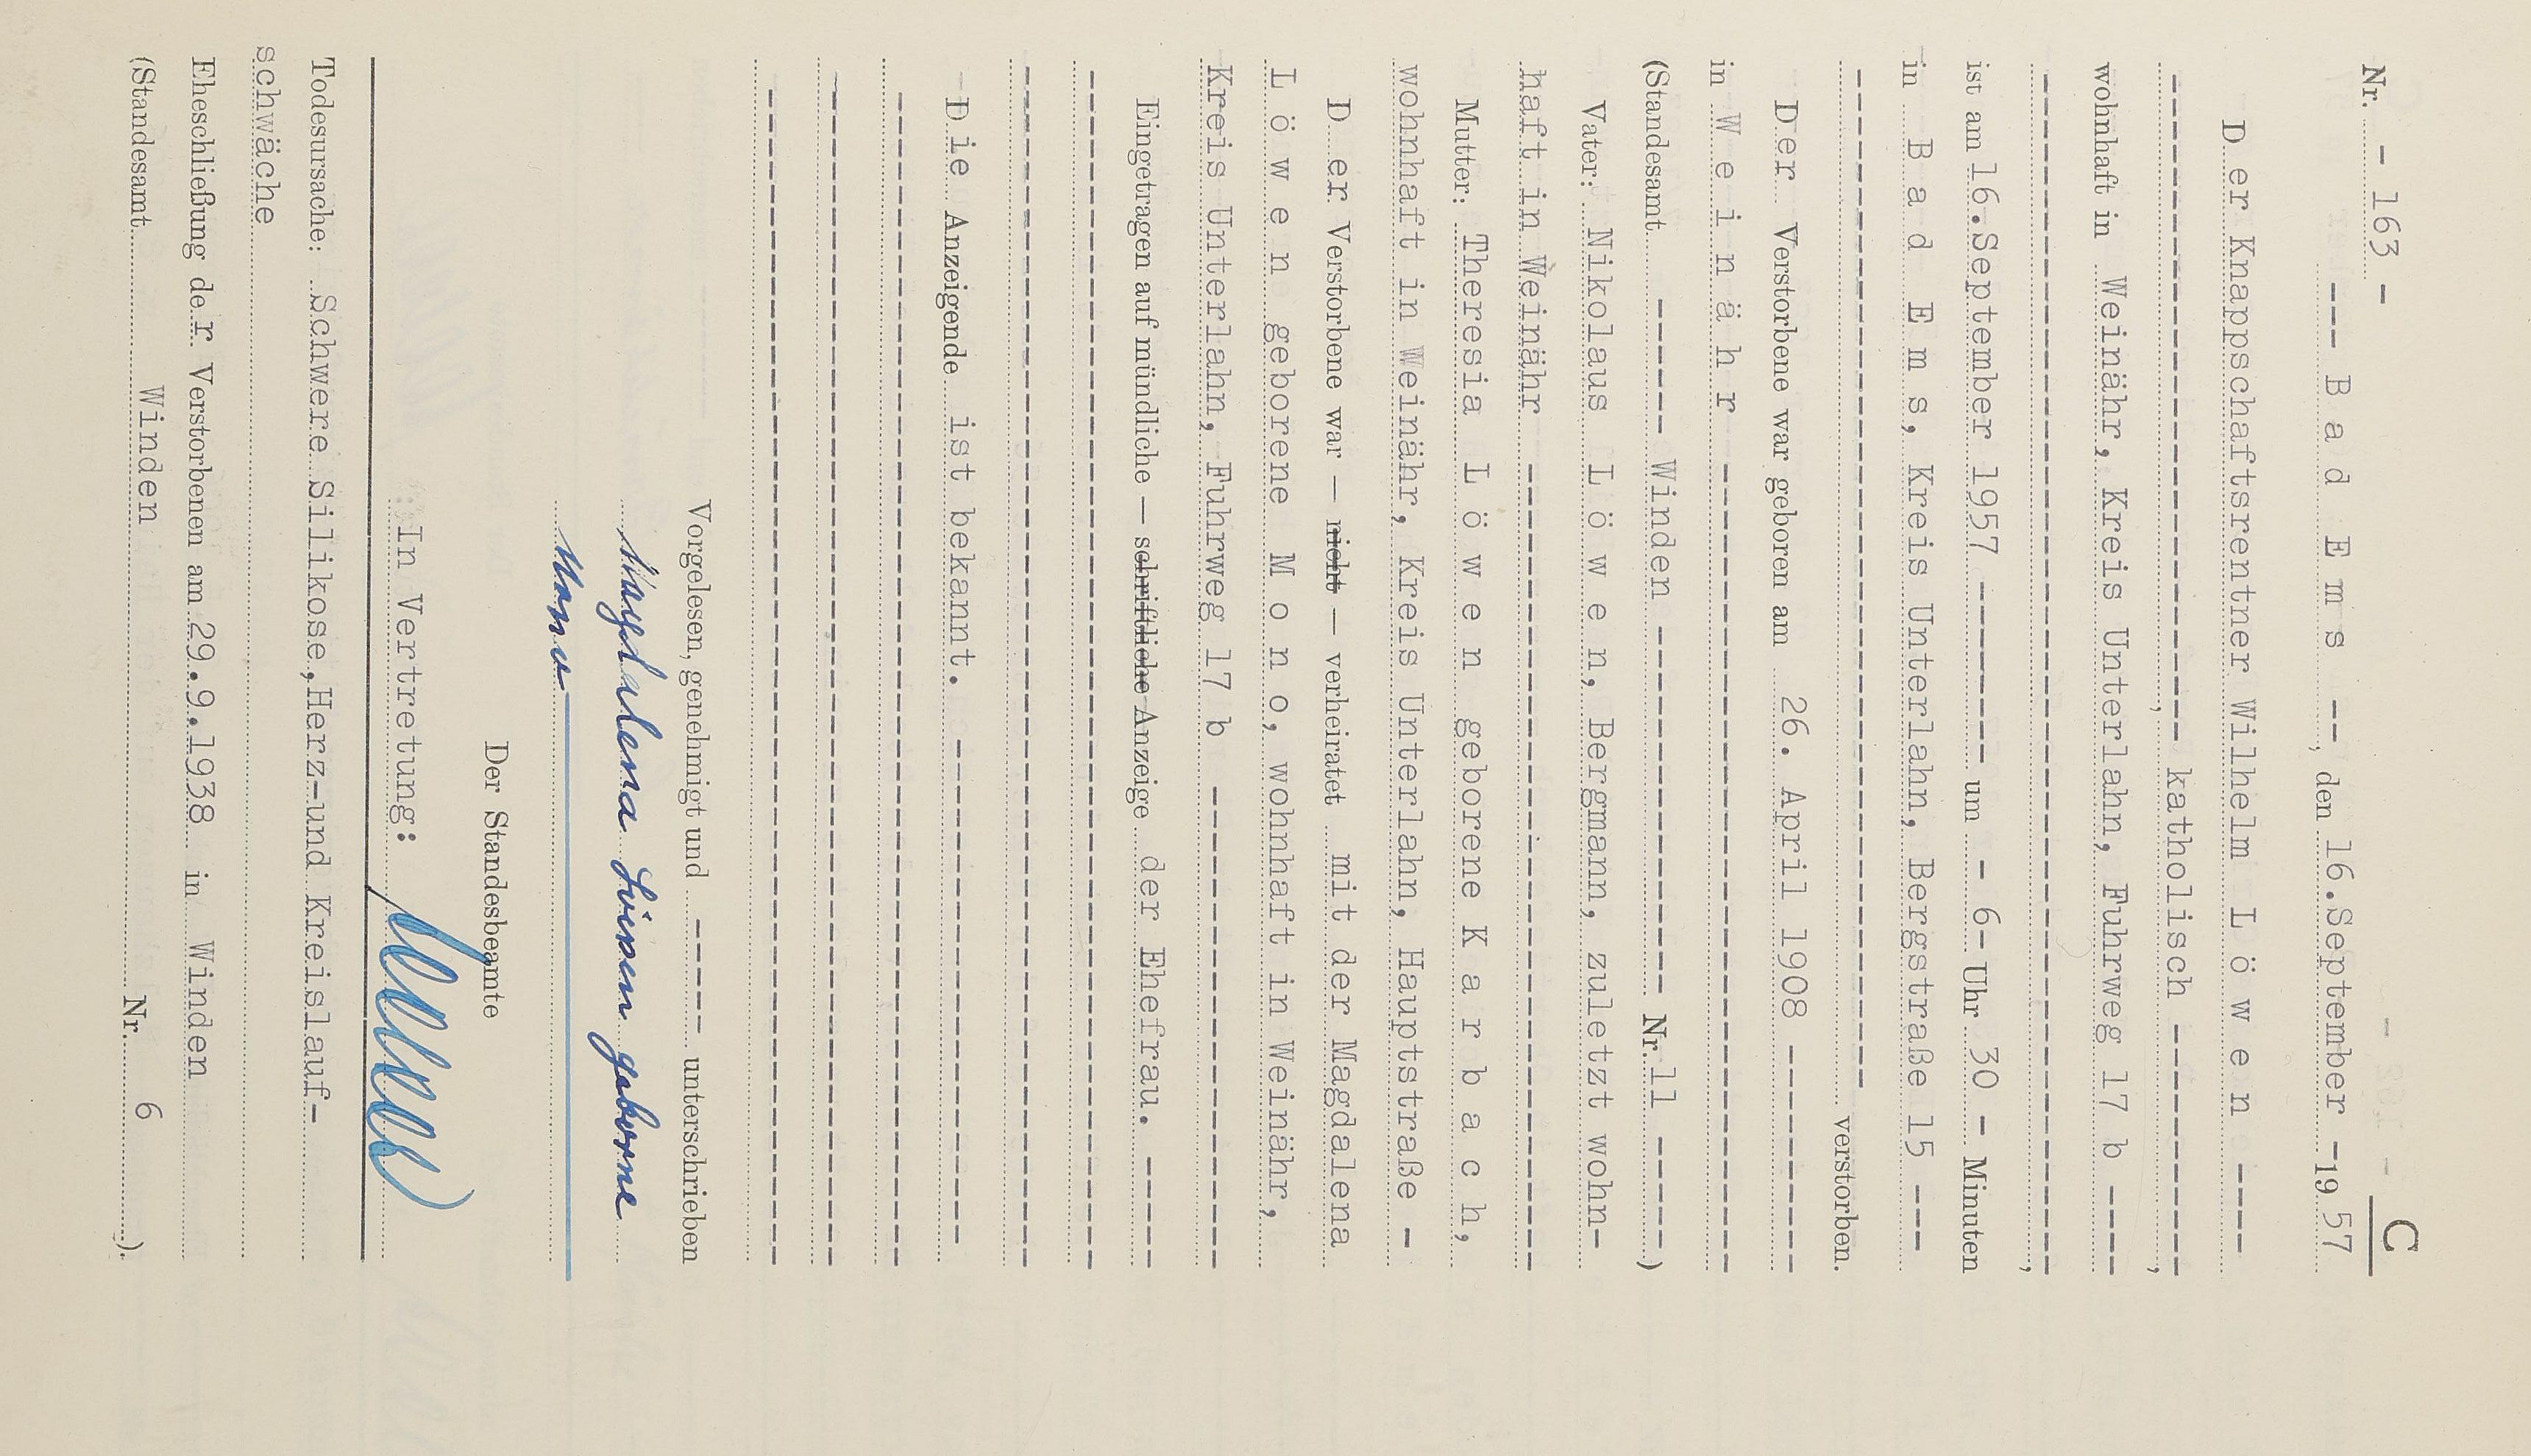 C
Nr. - 163 -
--- B a d  E m s --, den 16.September -19 57
D er Knappschaftsrentner Wilhelm L ö w e n ----
---------------------- katholisch ---------,
wohnhaft in Weinähr, Kreis Unterlahn, Fuhrweg 17 b ----
---------------------------------------,
ist am 16.September 1957 -------- um - 6- Uhr 30 - Minuten
in B a d  E m s, Kreis Unterlahn, Bergstraße 15 ---
--------------------------------- verstorben.
Der Verstorbene war geboren am 26. April 1908 -------
in W e i n ä h r -------------------------
(Standesamt ------ Winden ----------------- Nr. 11 -----)
Vater: Nikolaus L ö w e n, Bergmann, zuletzt wohn-
haft in Weinähr -------------------------
Mutter: Theresia L ö w e n geborene K a r b a c h,
wohnhaft in Weinähr, Kreis Unterlahn, Hauptstraße -
D er Verstorbene war — nicht — verheiratet mit der Magdalena
L ö w e n geborene M o n o, wohnhaft in Weinähr,
Kreis Unterlahn, Fuhrweg 17 b ---------------
Eingetragen auf mündliche — schriftliche Anzeige der Ehefrau. ----
D ie Anzeigende ist bekannt. ----------------
Vorgelesen, genehmigt und ----- unterschrieben
Magdalena Löwen geborene
Mono
Der Standesbeamte
In Vertretung:
Todesursache: Schwere Silikose,Herz-und Kreislauf-
schwäche
Eheschließung de r Verstorbenen am 29.9.1938 in Winden
(Standesamt Winden Nr. 6 ).